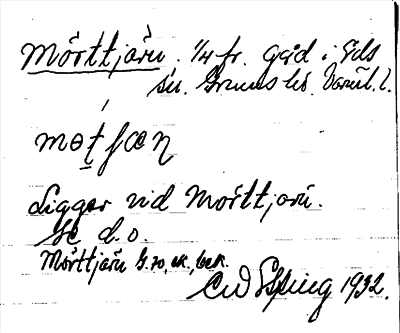 Mörttjärn. 1/4 fr. gård i Eds
sn. Grums hd. Värml. l.
møtʃæn
Ligger vid Mörttjärn.
Se d. o.
Mörttjärn G. 70, ek, bek.
1932.